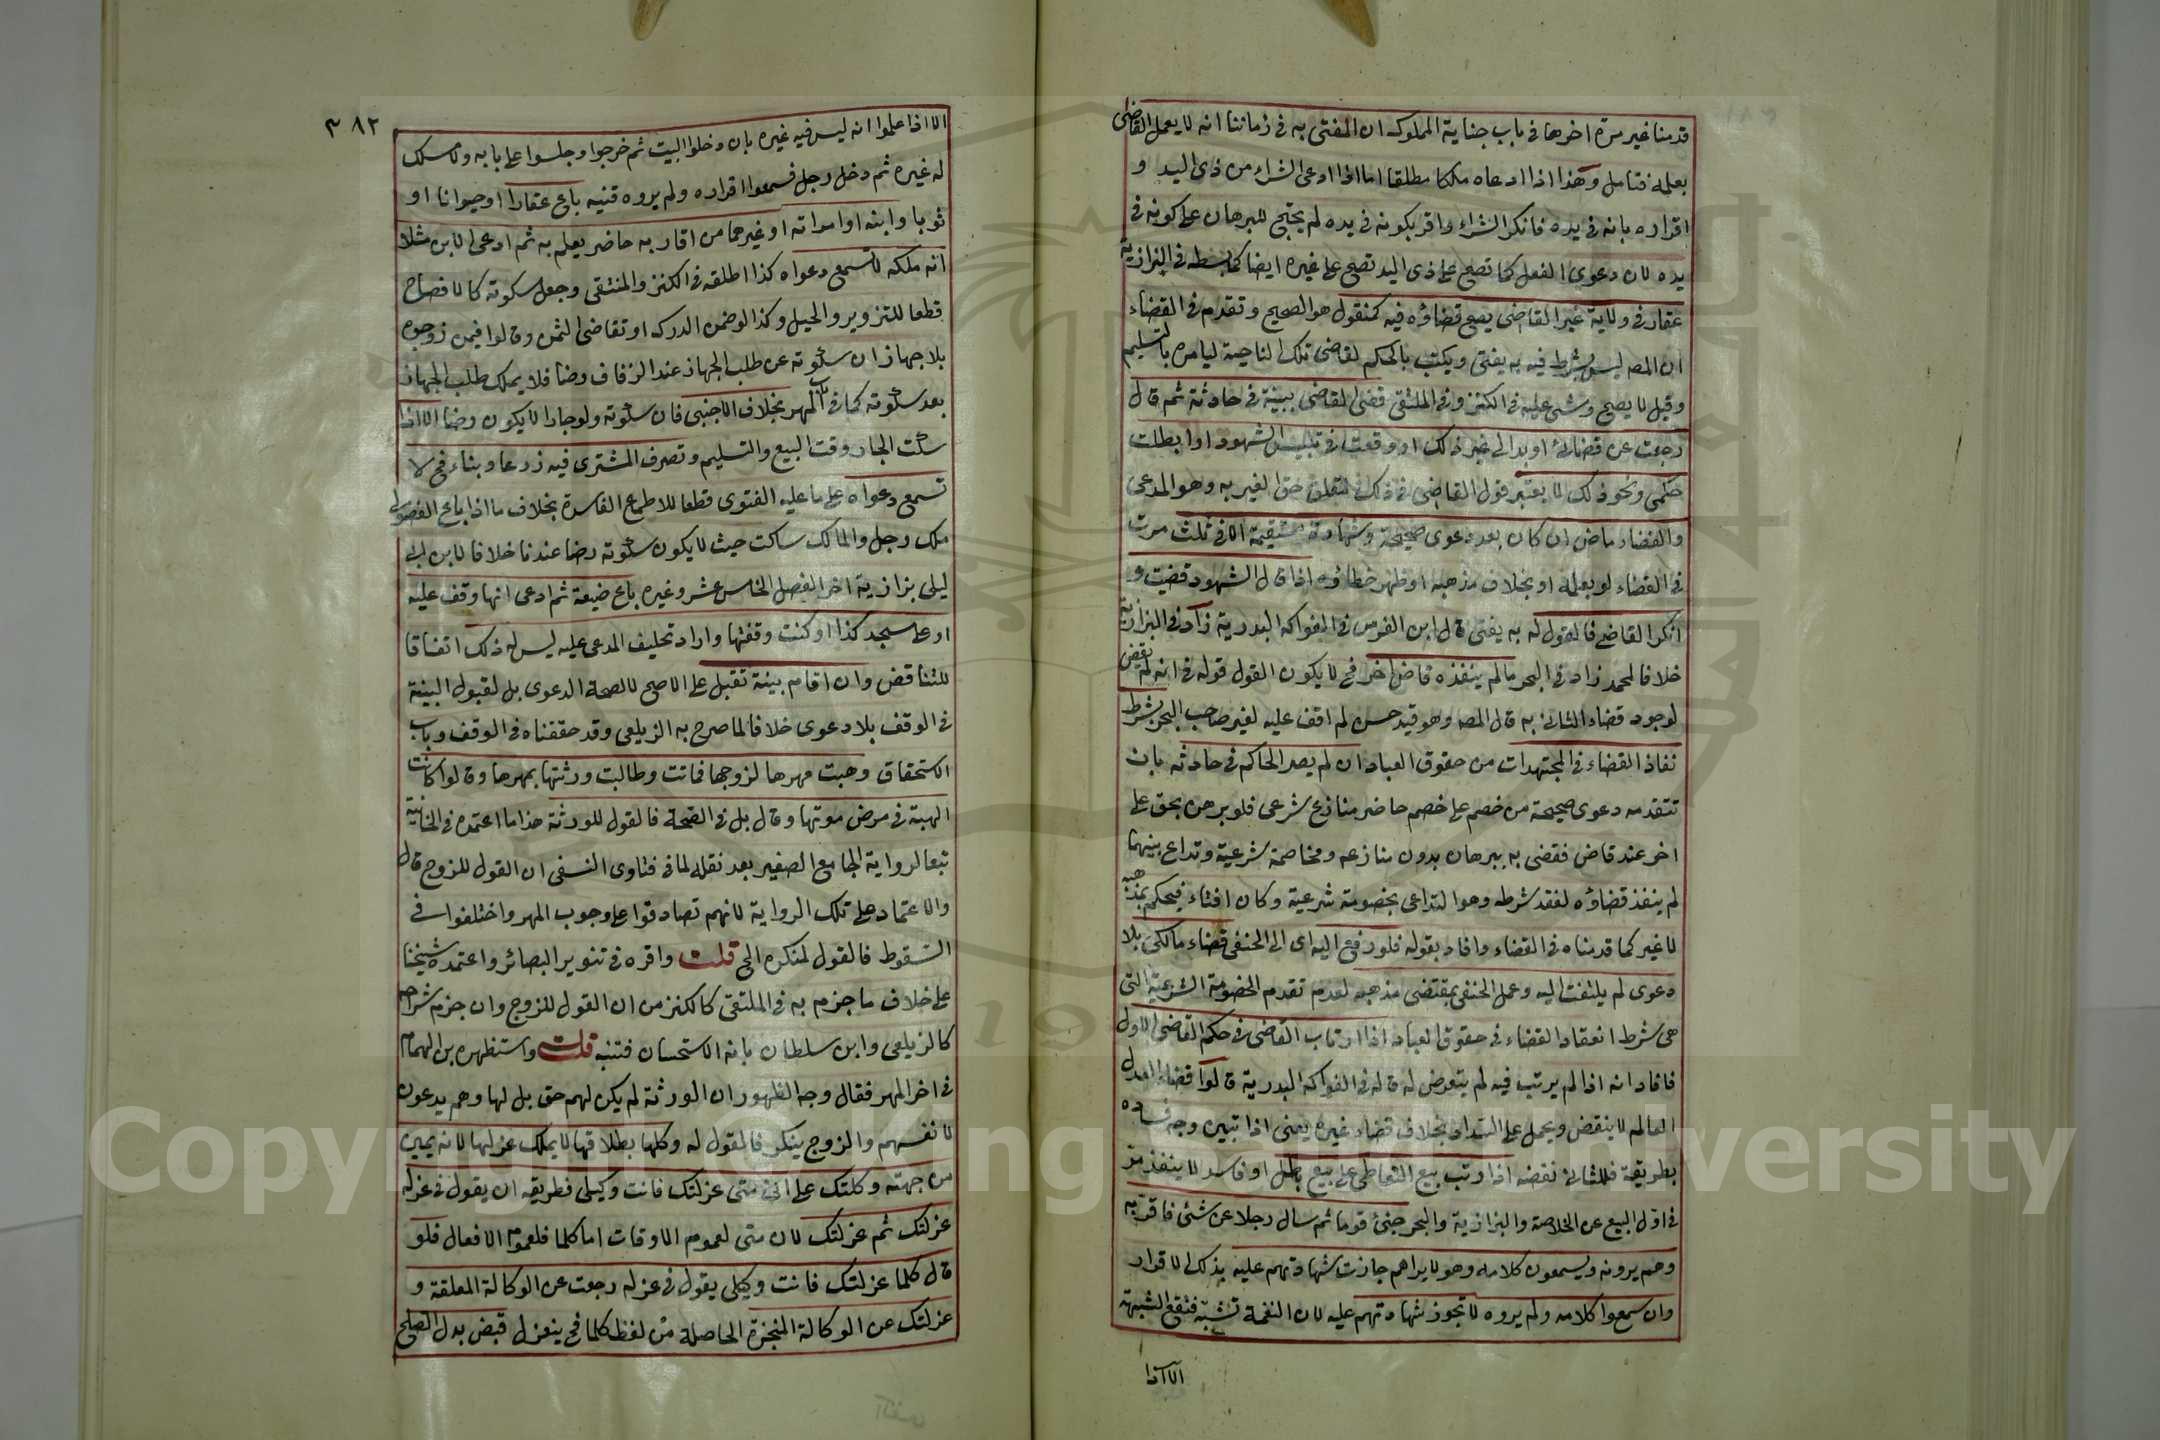 قدمنا غير مرة اخرها في باب جناية المملوك ان المفتى به في زماننا انه لا يعمل القاضى
بعلمه فتامل وهذا اذا ادعاه ملكا مطلقا اما اذا ادعى الشراء من ذى اليد و
اقراره بانه في يده فانكر الشراء واقر بكونه في يده لم يحتج للبرهان على كونه في
يده لان دعوى الفعل كما تصح على ذى اليد تصح على غيره ايضا كما بسطه في البزازية
عقار في ولاية غير القاضى يصح قضاؤه فيه كمنقول هو الصحيح وتقدم في القضاء
ان المصر ليس بشرط فيه به يفتى ويكتب بالحكم لقاضى تلك الناحية ليامره بالتسليم
وقيل لا يصح ومشى عليه في الكنز وفي الملتقى قضى القاضى ببينة في حادثة ثم قال
رجعت عن قضائى او بدا لى غير ذلك او وقعت في تلبيس الشهود او ابطلت
حكمى ونحو ذلك لا يعتبر قول القاضى في ذلك لتعلق حق الغير به وهو المدعى
والقضاء ماض ان كان بعد دعوى صحيحة وشهادة مستقيمة الا في ثلث مرت
في القضاء لو بعلمه او بخلاف مذهبه او ظهر خطاؤه اذا قال الشهود قضيت و
انكر القاضى فالقول له به يفتى قال ابن الغرس في الفواكه البدرية زاد في البزازية
خلافا لمحمد زاد في البحر ما لم ينفذه قاض اخر فح لا يكون القول قوله في انه لم يقض
لوجود قضاء الثانى به قال المصه وهو قيد حسن لم اقف عليه لغير صاحب البحر شرط
نفاذ القضاء في المجتهدات من حقوق العباد ان لم يصر الحاكم في حادثه بان
تتقدمه دعوى صحيحة من خصم على خصم حاضر منازع شرعى فلو برهن بحق على
اخر عند قاض فقضى به ببرهان بدون منازعه ومخاصمة شرعية وتداع بينهما
لم ينفذ قضاؤه لفقد شرطه وهو التداعى بخصومة شرعية وكان افتاء فيحكم بمذهبه
لا غير كما قدمناه في القضاء وافاد بقوله فلو رفع اليه اى الى الحنفى قضاء مالكى بلا
دعوى لم يلتفت اليه وعمل الحنفى بمقتضى مذهبه لعدم تقدم الخصومة الشرعية التى
هى شرط انعقاد القضاء في حقوق العباد اذا ارتاب القاضى في حكم القاضى الاول
فافاد انه اذا لم يرتب فيه لم يتعرض له قاله في الفواكه البدرية قالوا قضاء العدل
العالم لا ينقض ويحمل على السداد بخلاف قضاء غيره يعنى اذا تبين وجه فساده
بطريقة فللثانى نقضه اذا رتب بيع التعاطى على بيع باطل او فاسد لا ينفذ مر
في اول البيع عن الخلاصة والبزازية والبحر خبئ قوما ثم سال رجلا عن شئ فاقر به
وهم يرونه ويسمعون كلامه وهو لا يراهم جازت شهادتهم عليه بذلك الاقرار
وان سمعوا كلامه ولم يروه لا تجوز شهادتهم عليه لان النغمة تشبه فتقع الشبهة
الا اذا
٣٨٢
الا اذا علموا انه ليس فيه غيره بان دخلوا البيت ثم خرجوا وجلسوا على بابه ولا مسلك
له غيره ثم دخل رجل فسمعوا اقراره ولم يروه قنيه باع عقارا او حيوانا او
ثوبا وابنه او امراته او غيرهما من اقاربه حاضر يعلم به ثم ادعى الابن مثلا
انه ملكه لا تسمع دعواه كذا اطلقه في الكنز والملتقى وجعل سكوته كالافصاح
قطعا للتزوير والحيل وكذا لو ضمن الدرك او تقاضى الثمن وقالوا فيمن زوجوه
بلا جهاز ان سكوته عن طلب الجهاز عند الزفاف رضا فلا يملك طلب الجهاز
بعد سكوته كما في باب المهر بخلاف الاجنبى فان سكوته ولو جارا لا يكون رضا الا اذا
سكت الجار وقت البيع والتسليم وتصرف المشترى فيه زرعا وبناء فح لا
تسمع دعواه على ما عليه الفتوى قطعا للاطماع الفاسدة بخلاف ما اذا باع الفضولى
ملك رجل والمالك ساكت حيث لا يكون سكوته رضا عندنا خلافا لابن ابى
ليلى بزازية اخر الفصل الخامس عشر وغيره باع ضيعة ثم ادعى انها وقف عليه
او على مسجد كذا او كنت وقفتها واراد تحليف المدعى عليه ليس له ذلك اتفاقا
للتناقض وان اقام بينة تقبل على الاصح لا لصحة الدعوى بل لقبول البينة
في الوقف بلا دعوى خلافا لما صرح به الزيلعى وقد حققناه في الوقف وباب
الاستحقاق وهبت مهرها لزوجها فماتت وطالبت ورثتها بمهرها وقالوا كانت
الهبة في مرض موتها وقال بل في الصحة فالقول للورثة هذا ما اعتمده في الخانية
تبعا لرواية الجامع الصغير بعد نقله لما في فتاوى النسفى ان القول للزوج قال
والاعتماد على تلك الرواية لانهم تصادقوا على وجوب المهر واختلفوا في
السقوط فالقول لمنكره الخ قلت واقره في تنوير البصائر واعتمده شيخنا
على خلاف ما جزم به في الملتقى كالكنز من ان القول للزوج وان جزم شراحه
كالزيلعى وابن سلطان بانه الاستحسان فتنبه قلت واستظهره بن الهمام
في اخر المهر فقال وجه الظهور ان الورثة لم يكن لهم حق بل لها وهم يدعون
لانفسهم والزوج ينكر فالقول له وكلها بطلاقها لا يملك عزلها لانه يمين
من جهته وكلتك على انى متى عزلتك فانت وكيلى فطريقه ان يقول في عزله
عزلتك ثم عزلتك لان متى لعموم الاوقات اما كلما فلعموم الافعال فلو
قال كلما عزلتك فانت وكيلى يقول في عزله رجعت عن الوكالة المعلقة و
عزلتك عن الوكالة المنجزة الحاصلة من لفظ كلما فح ينعزل قبض بدل الصلح
Copyright © King Saud University